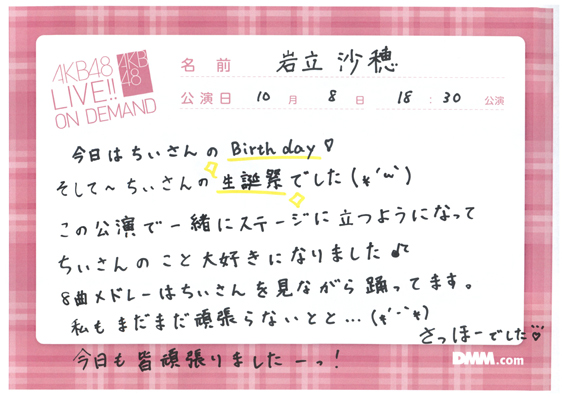 AKB48
LIVE!!
ON DEMAND
AKB
48
名前 岩立 沙穂
公演日 10 月 8 日 18 : 30 公演
今日はちぃさんの Birthday♡
そして〜ちぃさんの生誕祭でした(*´ω`)
この公演で一緒にステージに立つようになって
ちぃさんのこと大好きになりました♪
8曲メドレーはちぃさんを見ながら踊ってます。
私もまだまだ頑張らないとと…(*´-`*)
さっほーでした♡
今日も皆頑張りましたーっ!
DMM.com